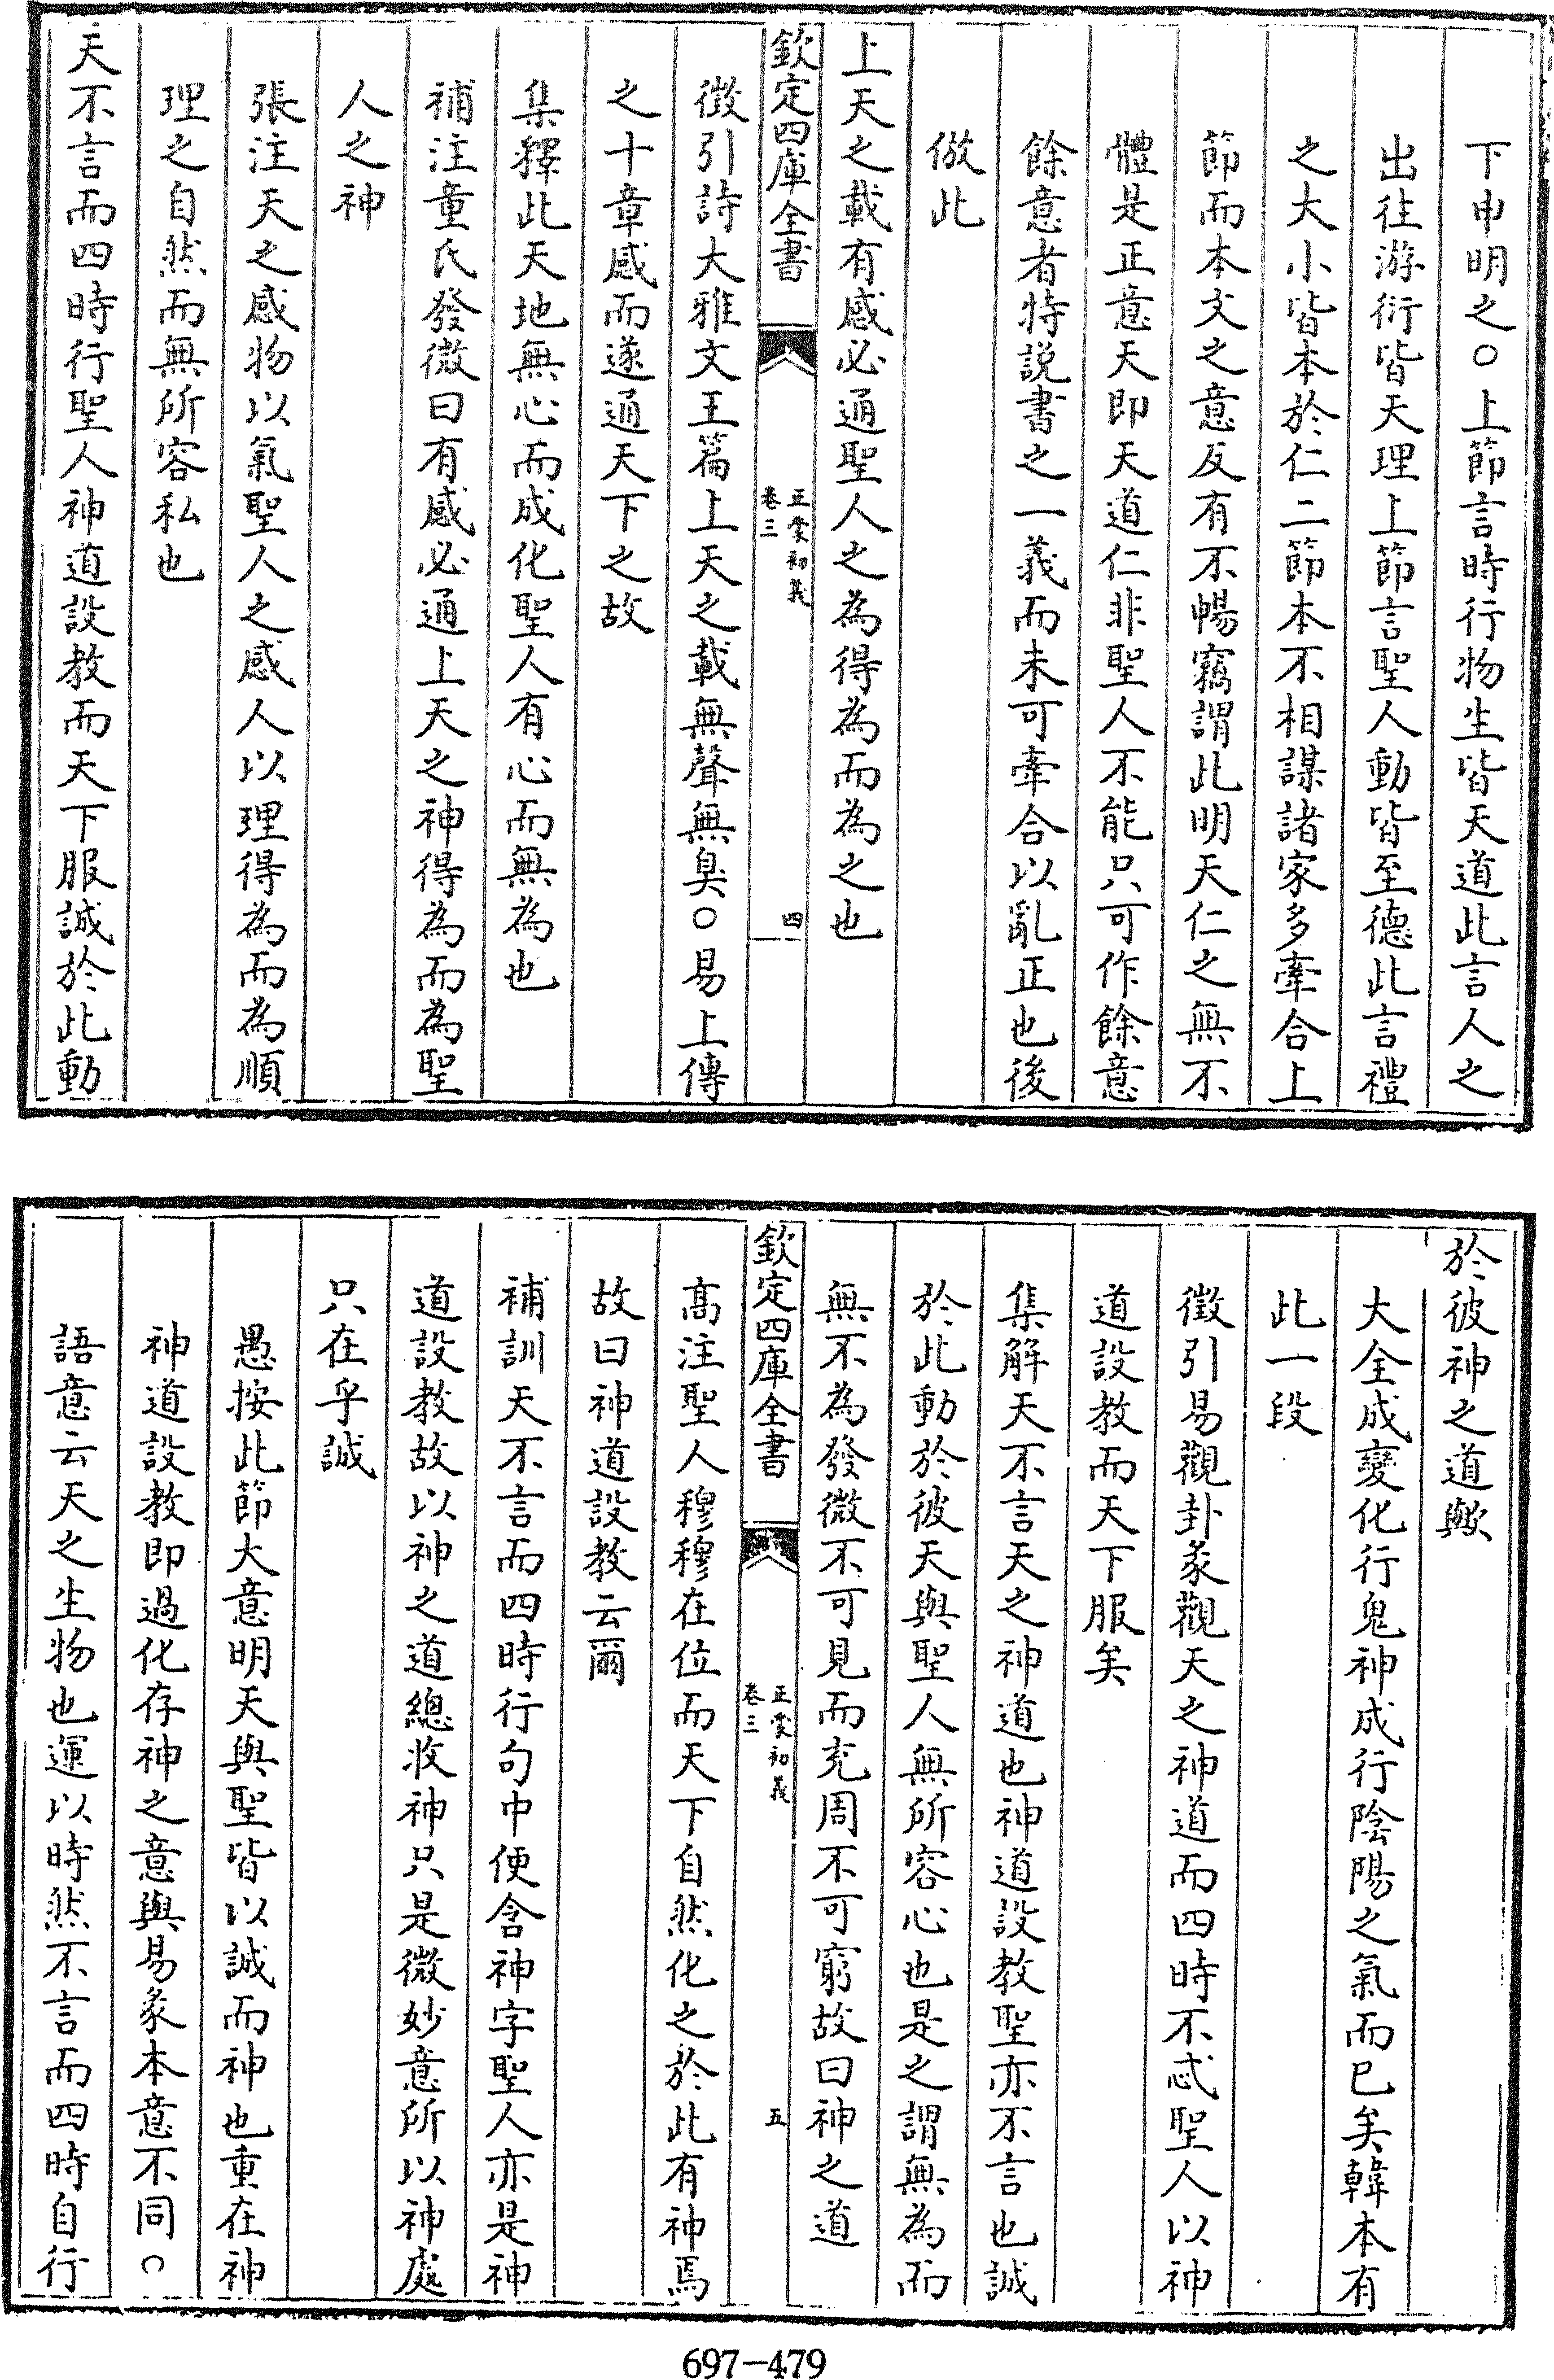 下申明之○上節言時行物生皆天道此言人之
出徃游衍皆天理上節言聖人動皆至德此言禮
之大小皆本於仁二節本不相謀諸家多牽合上
節而本文之意反有不暢竊謂此明天仁之無不
體是正意天即天道仁非聖人不能只可作餘意
餘意者特説書之一義而未可牽合以亂正也後
倣此
上天之載有感必通聖人之為得為而為之也
欽定四庫全書
正蒙初義
卷三
四
徴引詩大雅文王篇上天之載無聲無臭○易上傳
之十章感而遂通天下之故
集釋此天地無心而成化聖人有心而無為也
補注童氏發微曰有感必通上天之神得為而為聖
人之神
張注天之感物以氣聖人之感人以理得為而為順
理之自然而無所容私也
天不言而四時行聖人神道設教而天下服誠於此動
於彼神之道歟
大全成變化行鬼神成行陰陽之氣而已矣韓本有
此一段
徴引易觀卦彖觀天之神道而四時不忒聖人以神
道設教而天下服矣
集解天不言天之神道也神道設教聖亦不言也誠
於此動於彼天與聖人無所容心也是之謂無為而
無不為發微不可見而充周不可窮故曰神之道
欽定四庫全書
正蒙初義
卷三
五
高注聖人穆穆在位而天下自然化之於此有神焉
故曰神道設教云爾
補訓天不言而四時行句中便含神字聖人亦是神
道設教故以神之道總收神只是微妙意所以神處
只在乎誠
愚按此節大意明天與聖皆以誠而神也重在神
神道設教即過化存神之意與易彖本意不同○
語意云天之生物也運以時然不言而四時自行
697-479